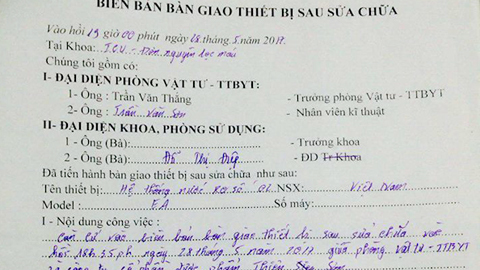 BIÊN BẢN BÀN GIAO THIẾT BỊ SAU SỬA CHỮA
Vào hồi 19 giờ 00 phút ngày 28 tháng 5 năm 2017.
Tại Khoa: Đơn nguyên lọc máu
Chúng tôi gồm có:
I- ĐẠI DIỆN PHÒNG VẬT TƯ - TTBYT:
1- Ông : Trần Văn Thắng - Trưởng phòng Vật tư - TTBYT
2- Ông : Trần Văn Sơn - Nhân viên kĩ thuật
II- ĐẠI DIỆN KHOA, PHÒNG SỬ DỤNG:
1 - Ông (Bà): - Trưởng khoa
2 - Ông (Bà): Đỗ Thị Điệp - ĐD Tr Khoa
Đã tiến hành bàn giao thiết bị sau sửa chữa như sau:
Tên thiết bị: Hệ thống nước RO số 02 NSX: Việt Nam
Model : Số máy:
I - Nội dung công việc :
Căn cứ vào biên bản bàn giao thiết bị sau sửa chữa vào
hồi ngày 28 tháng 5 năm 2017 giữa phòng vật tư - TTBYT
và công ty cổ phần dược phẩm Thiên Sơn